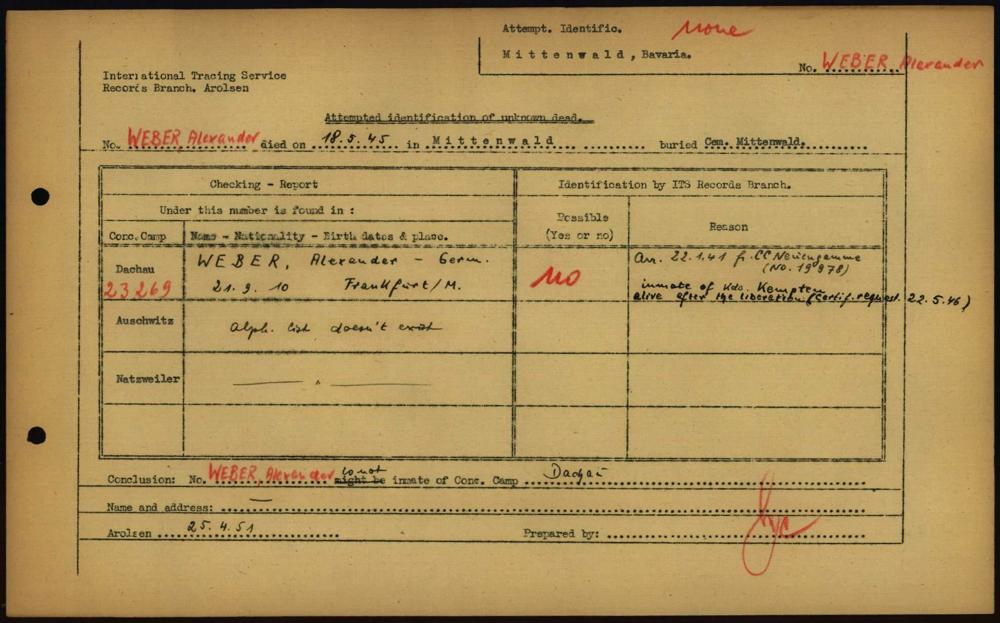 Attempt. Identific. none
Mittenwald, Bavaria.
No. WEBER, Alexander
International Tracing Service
Records Branch. Arolsen
Attempted identification of unknown dead.
No. WEBER, Alexander died on 18.5.45 in Mittenwald buried Cem. Mittenwald.
Checking - Report
Identification by ITS Records Branch.
Under this number is found in :
Possible
(Yes or no)
Reason
Conc. Camp
Name - Nationality - Birth dates & place.
Dachau
23269
WEBER, Alexander - Germ.
21.9.10 Frankfurt/M.
NO
Arr. 22.1.41 fr. CC Neuengamme
inmate of Kdo. Kempten
alive after the liberation (certif. request. 22.5.46)
Auschwitz
Alph. list doesn't exist
Natzweiler
Conclusion: No. WEBER, Alexander is not might be inmate of Conc. Camp Dachau
Name and address: —
Arolsen 25.4.51
Prepared by: